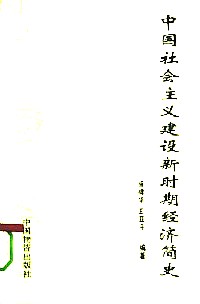 中国社会主义建设新时期经济简史
编著
中国经济出版社